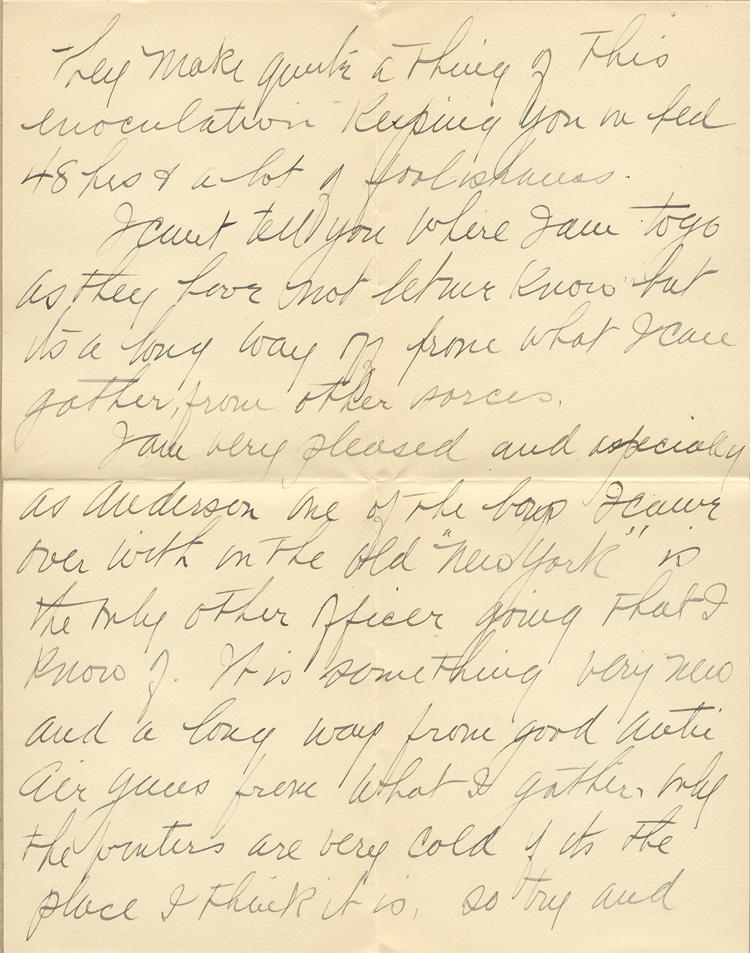 they make quite a thing of this
enoculation keeping you in bed
48 hrs & a lot of foolishness.
I cant tell you where I am to go
as they have not let me know but
its a long way off from what I can
gather, from other sorces.
I am very pleased and especially
as Anderson one of the boys I came
over with on the old "New York" is
the only other officer going that I
know of. It is something very new
and a long way from good anti
air guns from what I gather, only
the winters are very cold if its the
place I think it is, so try and